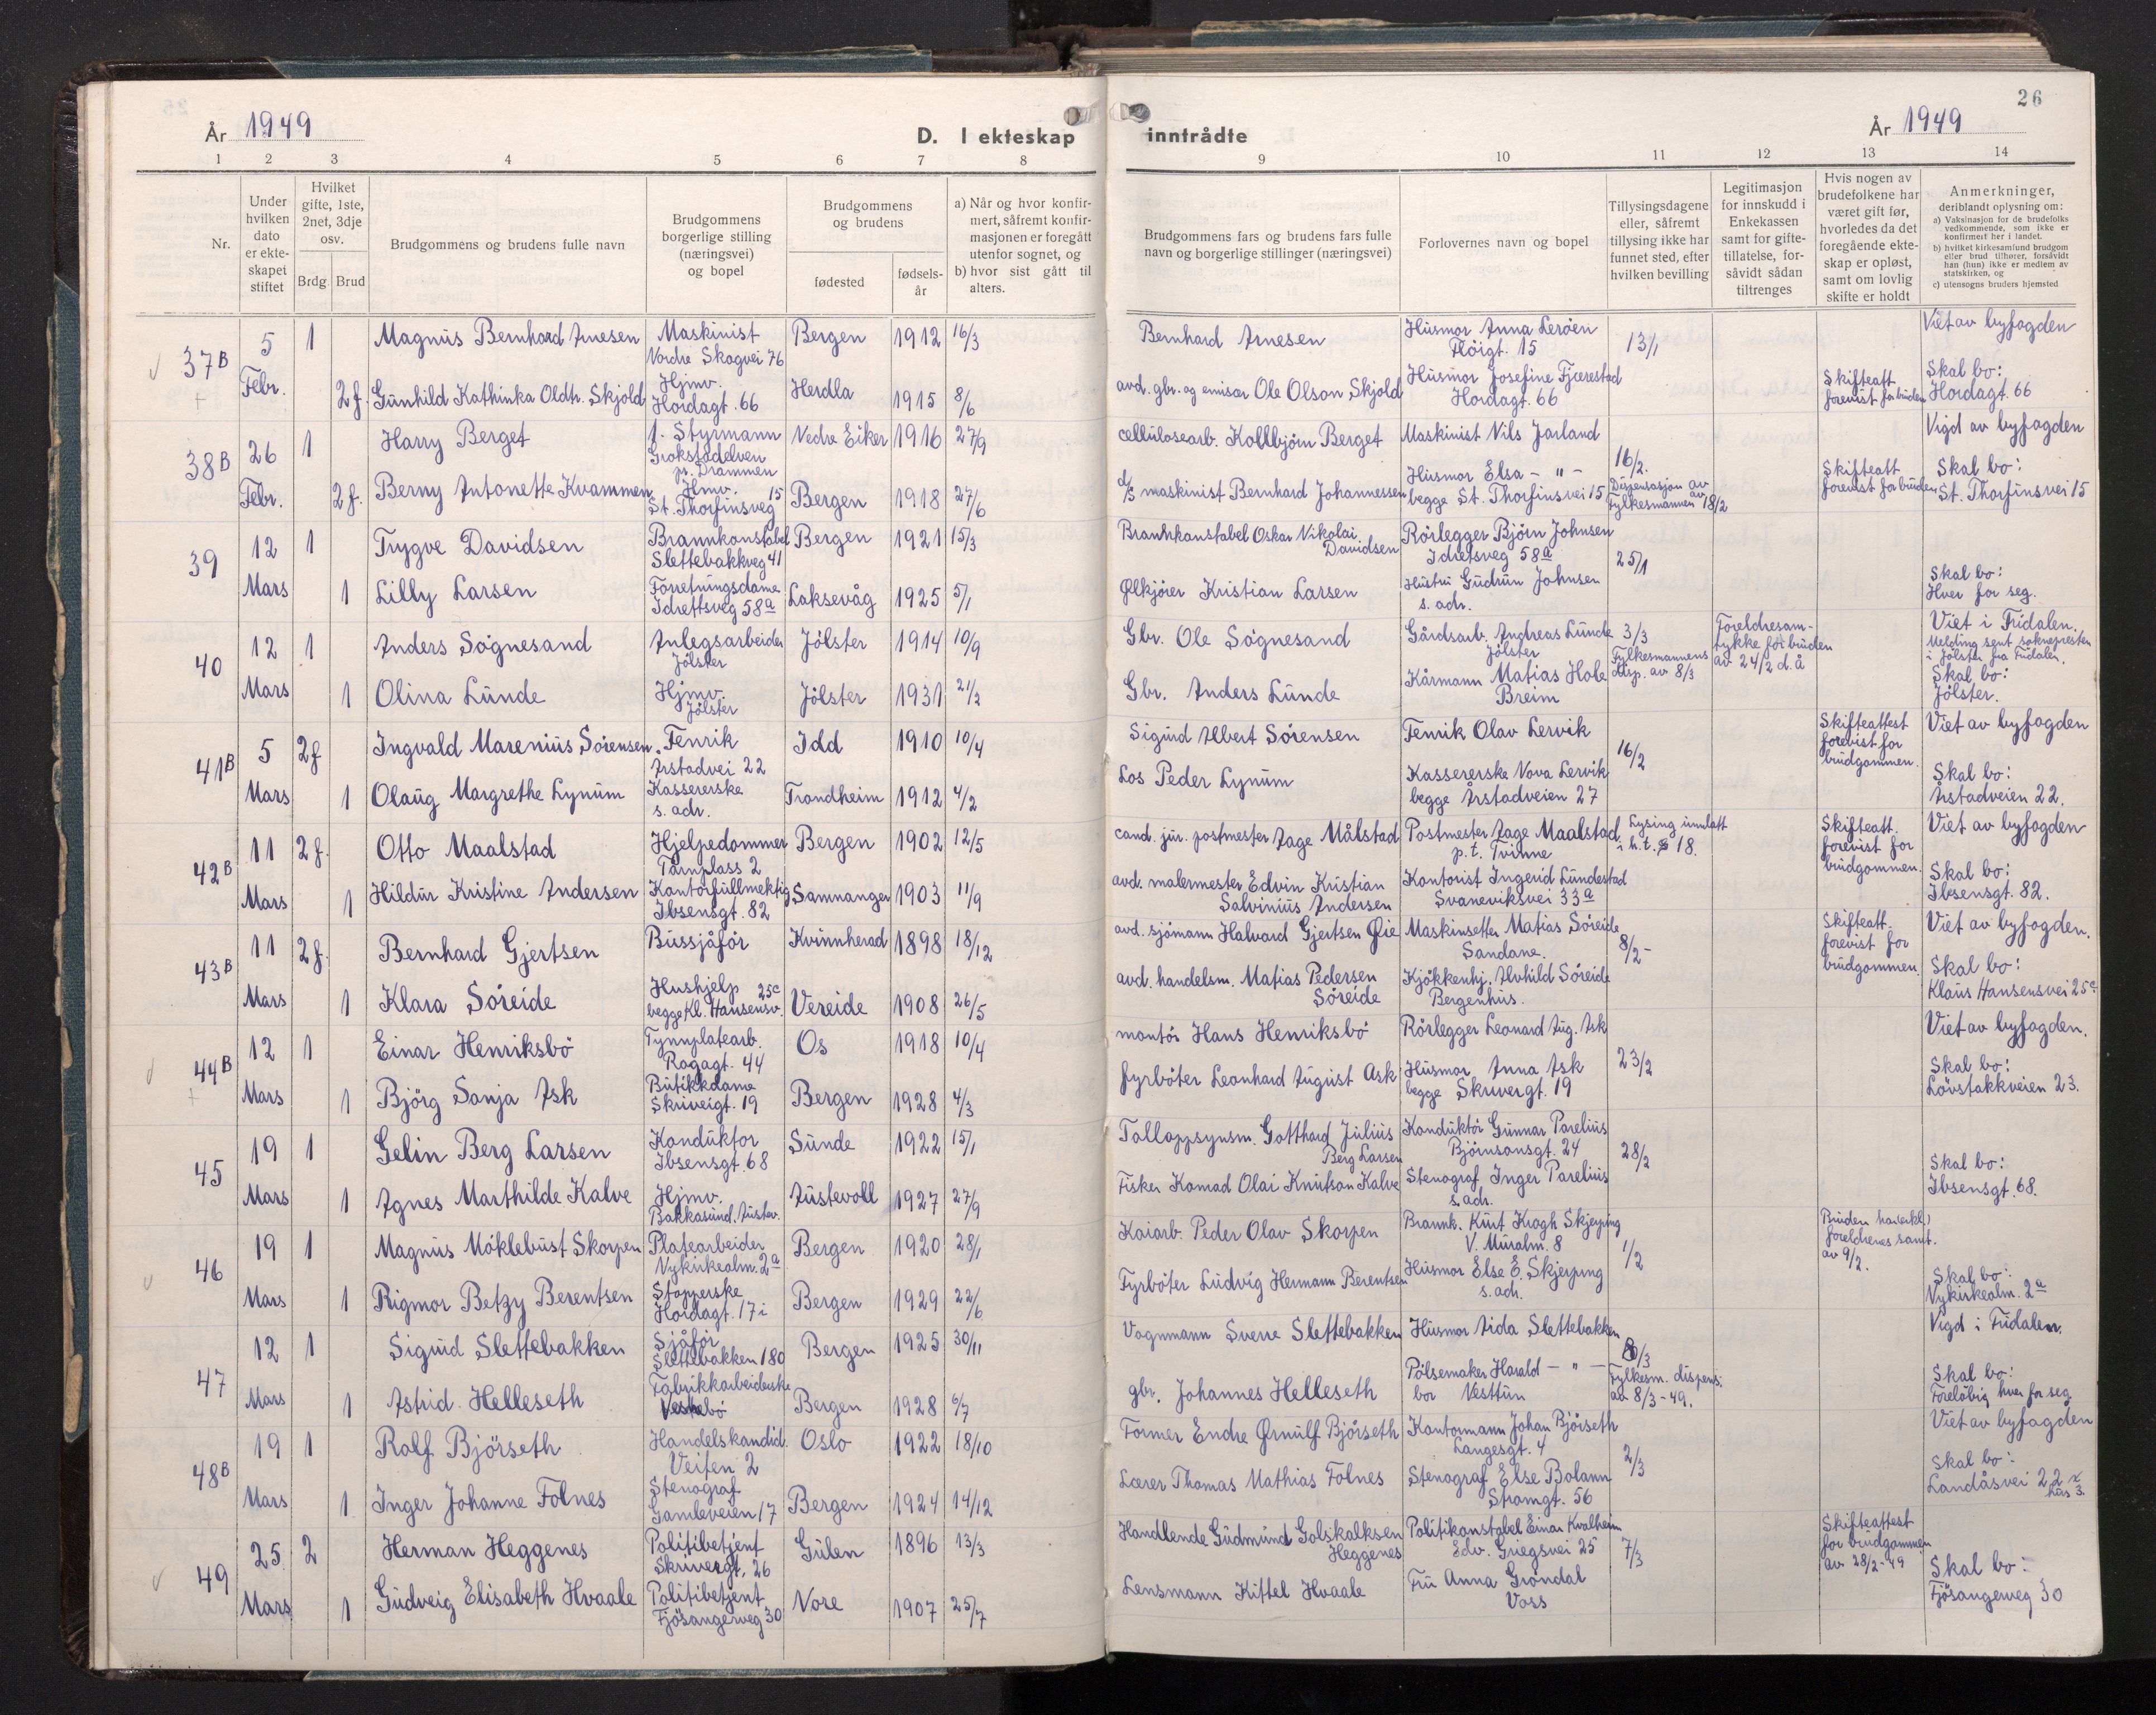 26
År 1949
D. I ekteskap inntrådte
År 1949
1 2 3 4 5 6 7 8 9 10 11 12 13 14
Nr.
Under hvilken dato er ekteskapet stiftet
Hvilket gifte, 1ste, 2net, 3dje osv.
Brdg. Brud
Brudgommens og brudens fulle navn
Brudgommens borgerlige stilling (næringsvei) og bopel
Brudgommens og brudens
fødested
fødsels-år
a) Når og hvor konfirmert, såfremt konfirmasjonen er foregått utenfor sognet, og
b) hvor sist gått til alters.
Brudgommens fars og brudens fars fulle navn og borgerlige stillinger (næringsvei)
Forlovernes navn og bopel
Tillysingsdagene eller, såfremt tillysing ikke har funnet sted, efter hvilken bevilling
Legitimasjon for innskudd i Enkekassen samt for giftetillatelse, forsåvidt sådan tiltrenges
Hvis nogen av brudefolkene har været gift før, hvorledes da det foregående ekteskap er opløst, samt om lovlig skifte er holdt
Anmerkninger, deriblandt oplysning om:
a) Vaksinasjon for de brudefolks vedkommende, som ikke er konfirmert her i landet.
b) hvilket kirkesamfund brudgom eller brud tilhører, forsåvidt han (hun) ikke er medlem av statskirken, og
c) utensogns bruders hjemsted
37B 5 Febr. 1 Magnus Bernhard Arnesen Maskinist Nordre Skogvei 76 Bergen 1912 16/3 Bernhard Arnesen Husmor Anna Lerøen Fløigt. 15 13/1 Viet av byfogden
2 f. Gunhild Kathinka Oldtr. Skjold Hjmv. Hordagt. 66 Herdla 1915 8/6 avd. gbr. og emisær Ole Olson Skjold Husmor Josefine Fjærestad Hordagt. 66 Skifteatt. forevist for bruden Skal bo: Hordagt. 66
38B 26 Febr. 1 Harry Berget 1. Styrmann Grokstadelven pr. Drammen Nedre Eiker 1916 27/9 cellulosearb. Kollbjørn Berget Maskinist Nils Jarland 16/2. Vigd av byfogden
2 f. Berny Antonette Kvammen Hjmv. St. Thorfinsveg 15 Bergen 1918 27/6 d/s maskinist Bernhard Johannessen Husmor Elsa - " - begge St. Thorfinsvei 15 Dispensasjon av Fylkesmannen av 18/2 Skifteatt forevist for bruden Skal bo: St. Thorfinsvei 15
39 12 Mars 1 Trygve Davidsen Brannkonstabel Slettebakkveg 41 Bergen 1921 15/3 Brannkonstabel Oskar Nikolai Davidsen Rørlegger Bjørn Johnsen Idretsveg 58a 25/1
1 Lilly Larsen Forretningsdame Idrettsveg 58a Laksevåg 1925 5/1 Ølkjører Kristian Larsen Hustru Gudrun Johnsen s. adr. Skal bo: Hver for seg.
40 12 Mars 1 Anders Søgnesand Anlegsarbeider Jølster Jølster 1914 10/9 Gbr. Ole Søgnesand Gårdsarb. Andreas Lunde Jølster 3/3 Fylkesmannens disp. av 8/3 Foreldresamtykke for bruden av 24/2 d.å Viet i Fridalen. Melding sent soknepresten i Jølster fra Fridalen.
1 Olina Lunde Hjmv. Jølster Jølster 1931 21/2 Gbr. Anders Lunde Kårmann Matias Hole Breim Skal bo: Jølster.
41B 5 Mars 2 f Ingvald Marenius Sørensen. Fenrik Årstadvei 22 Idd 1910 10/4 Sigurd Albert Sørensen Fenrik Olav Lervik 16/2 Skifteattest forevist for brudgommen. Viet av byfogden
1 Olaug Margrethe Lynum Kassererske s. adr. Trondheim 1912 4/2 Los Peder Lynum Kassererske Nova Lervik begge Årstadveien 27 Skal bo: Årstadveien 22.
42B 11 Mars 2 f. Otto Maalstad Hjelpedommer Tårnplass 2 Bergen 1902 12/5 cand. jur. postmester Aage Målstad Postmester Aage Maalstad p.t. Tvinne Lysing unnlatt i h.t. § 18. Skifteatt. forevist for brudgommen. Viet av byfogden
1 Hildur Kristine Andersen Kontorfullmektig Ibsensgt. 82 Samnanger 1903 11/9 avd. malermester Edvin Kristian Salvinius Andersen Kontorist Ingerid Lundestad Svaneviksvei 33a Skal bo: Ibsensgt. 82.
43B 11 Mars 2 f. Bernhard Gjertsen Bussjåfør Kvinnherad 1898 18/12 avd. sjømann Halvard Gjertsen Øie Maskinsetter Matias Søreide Sandane. 8/2- Skifteatt. forevist for brudgommen. Viet av byfogden.
1 Klara Søreide Hushjelp begge Kl. Hansensv. 25c Vereide 1908 26/5 avd. handelsm. Matias Pedersen Søreide Kjøkkenhj. Alvhild Søreide Bergenhus. Skal bo: Klaus Hansensvei 25c
44B 12 Mars 1 Einar Henriksbø Tynnplatearb. Rogagt. 44 Os 1918 10/4 montør Hans Henriksbø Rørlegger Leonard Aug. Ask 23/2 Viet av byfogden.
1 Bjørg Sonja Ask Butikkdame Skrivergt. 19 Bergen 1928 4/3 fyrbøter Leonhard August Ask Husmor Anna Ask begge Skrivergt. 19 Skal bo: Løvstakkveien 23.
45 19 Mars 1 Gelin Berg Larsen Konduktør Ibsensgt. 68 Sunde 1922 15/1 Tolloppsynsm. Gotthard Julius Berg Larsen Konduktør Gunnar Parelius Bjørnsonsgt. 24 28/2
1 Agnes Marthilde Kalve Hjmv. Bakkasund. Austev. Austevoll 1927 27/9 Fisker Konrad Olai Knutson Kalve Stenograf Inger Parelius s. adr. Skal bo: Ibsensgt. 68.
46 19 Mars 1 Magnus Møklebust Skorpen Platearbeider Nykirkealm. 2a Bergen 1920 28/1 Kaiarb. Peder Olav Skorpen Brannk. Kurt Krogh Skjerping V. Muralm. 8 1/2 Bruden har erkl. foreldrenes samt. av 9/2.
1 Rigmor Betzy Berentsen Stopperske Hordagt. 17 i Bergen 1929 22/6 Fyrbøter Ludvig Hermann Berentsen Husmor Else E. Skjerping s. adr. Skal bo: Nykirkealm. 2a
47 12 Mars 1 Sigurd Slettebakken Sjåfør Slettebakken 180 Bergen 1925 30/11 Vognmann Sverre Slettebakken Husmor Aida Slettebakken 8/3 Vigd i Fridalen.
1 Astrid Helleseth Fabrikkarbeiderske Bergen 1928 6/7 gbr. Johannes Helleseth Pølsemaker Harald - " - bor Nesttun Fylkesm. dispens. av 8/3-49. Skal bo: Foreløbig hver for seg.
48B 19 Mars 1 Rolf Bjørseth Handelskandid. Veiten 2 Oslo 1922 18/10 Former Endre Ørnulf Bjørseth Kontormann Johan Bjørseth Langesgt. 4 2/3 Viet av byfogden
1 Inger Johanne Folnes Stenograf Gamleveien 17 Bergen 1924 14/12 Lærer Thomas Mathias Folnes Stenograf Else Bolann Strømgt. 56 Skal bo: Landåsvei 22 hus 3.
49 25 Mars 2 Herman Heggenes Politibetjent Skrivergt. 26 Gulen 1896 13/3 Handlende Gudmund Golskalksen Heggenes Politikonstabel Einar Kvalheim Edv. Griegsvei 25 7/3 Skifteattest for brudgommen av 28/2-49
1 Gudveig Elisabeth Hvaale Politibetjent Fjøsangerveg 30 Nore 1907 25/7 Lensmann Kittel Hvaale Fru Anna Grøndal Voss Skal bo: Fjøsangerveg 30